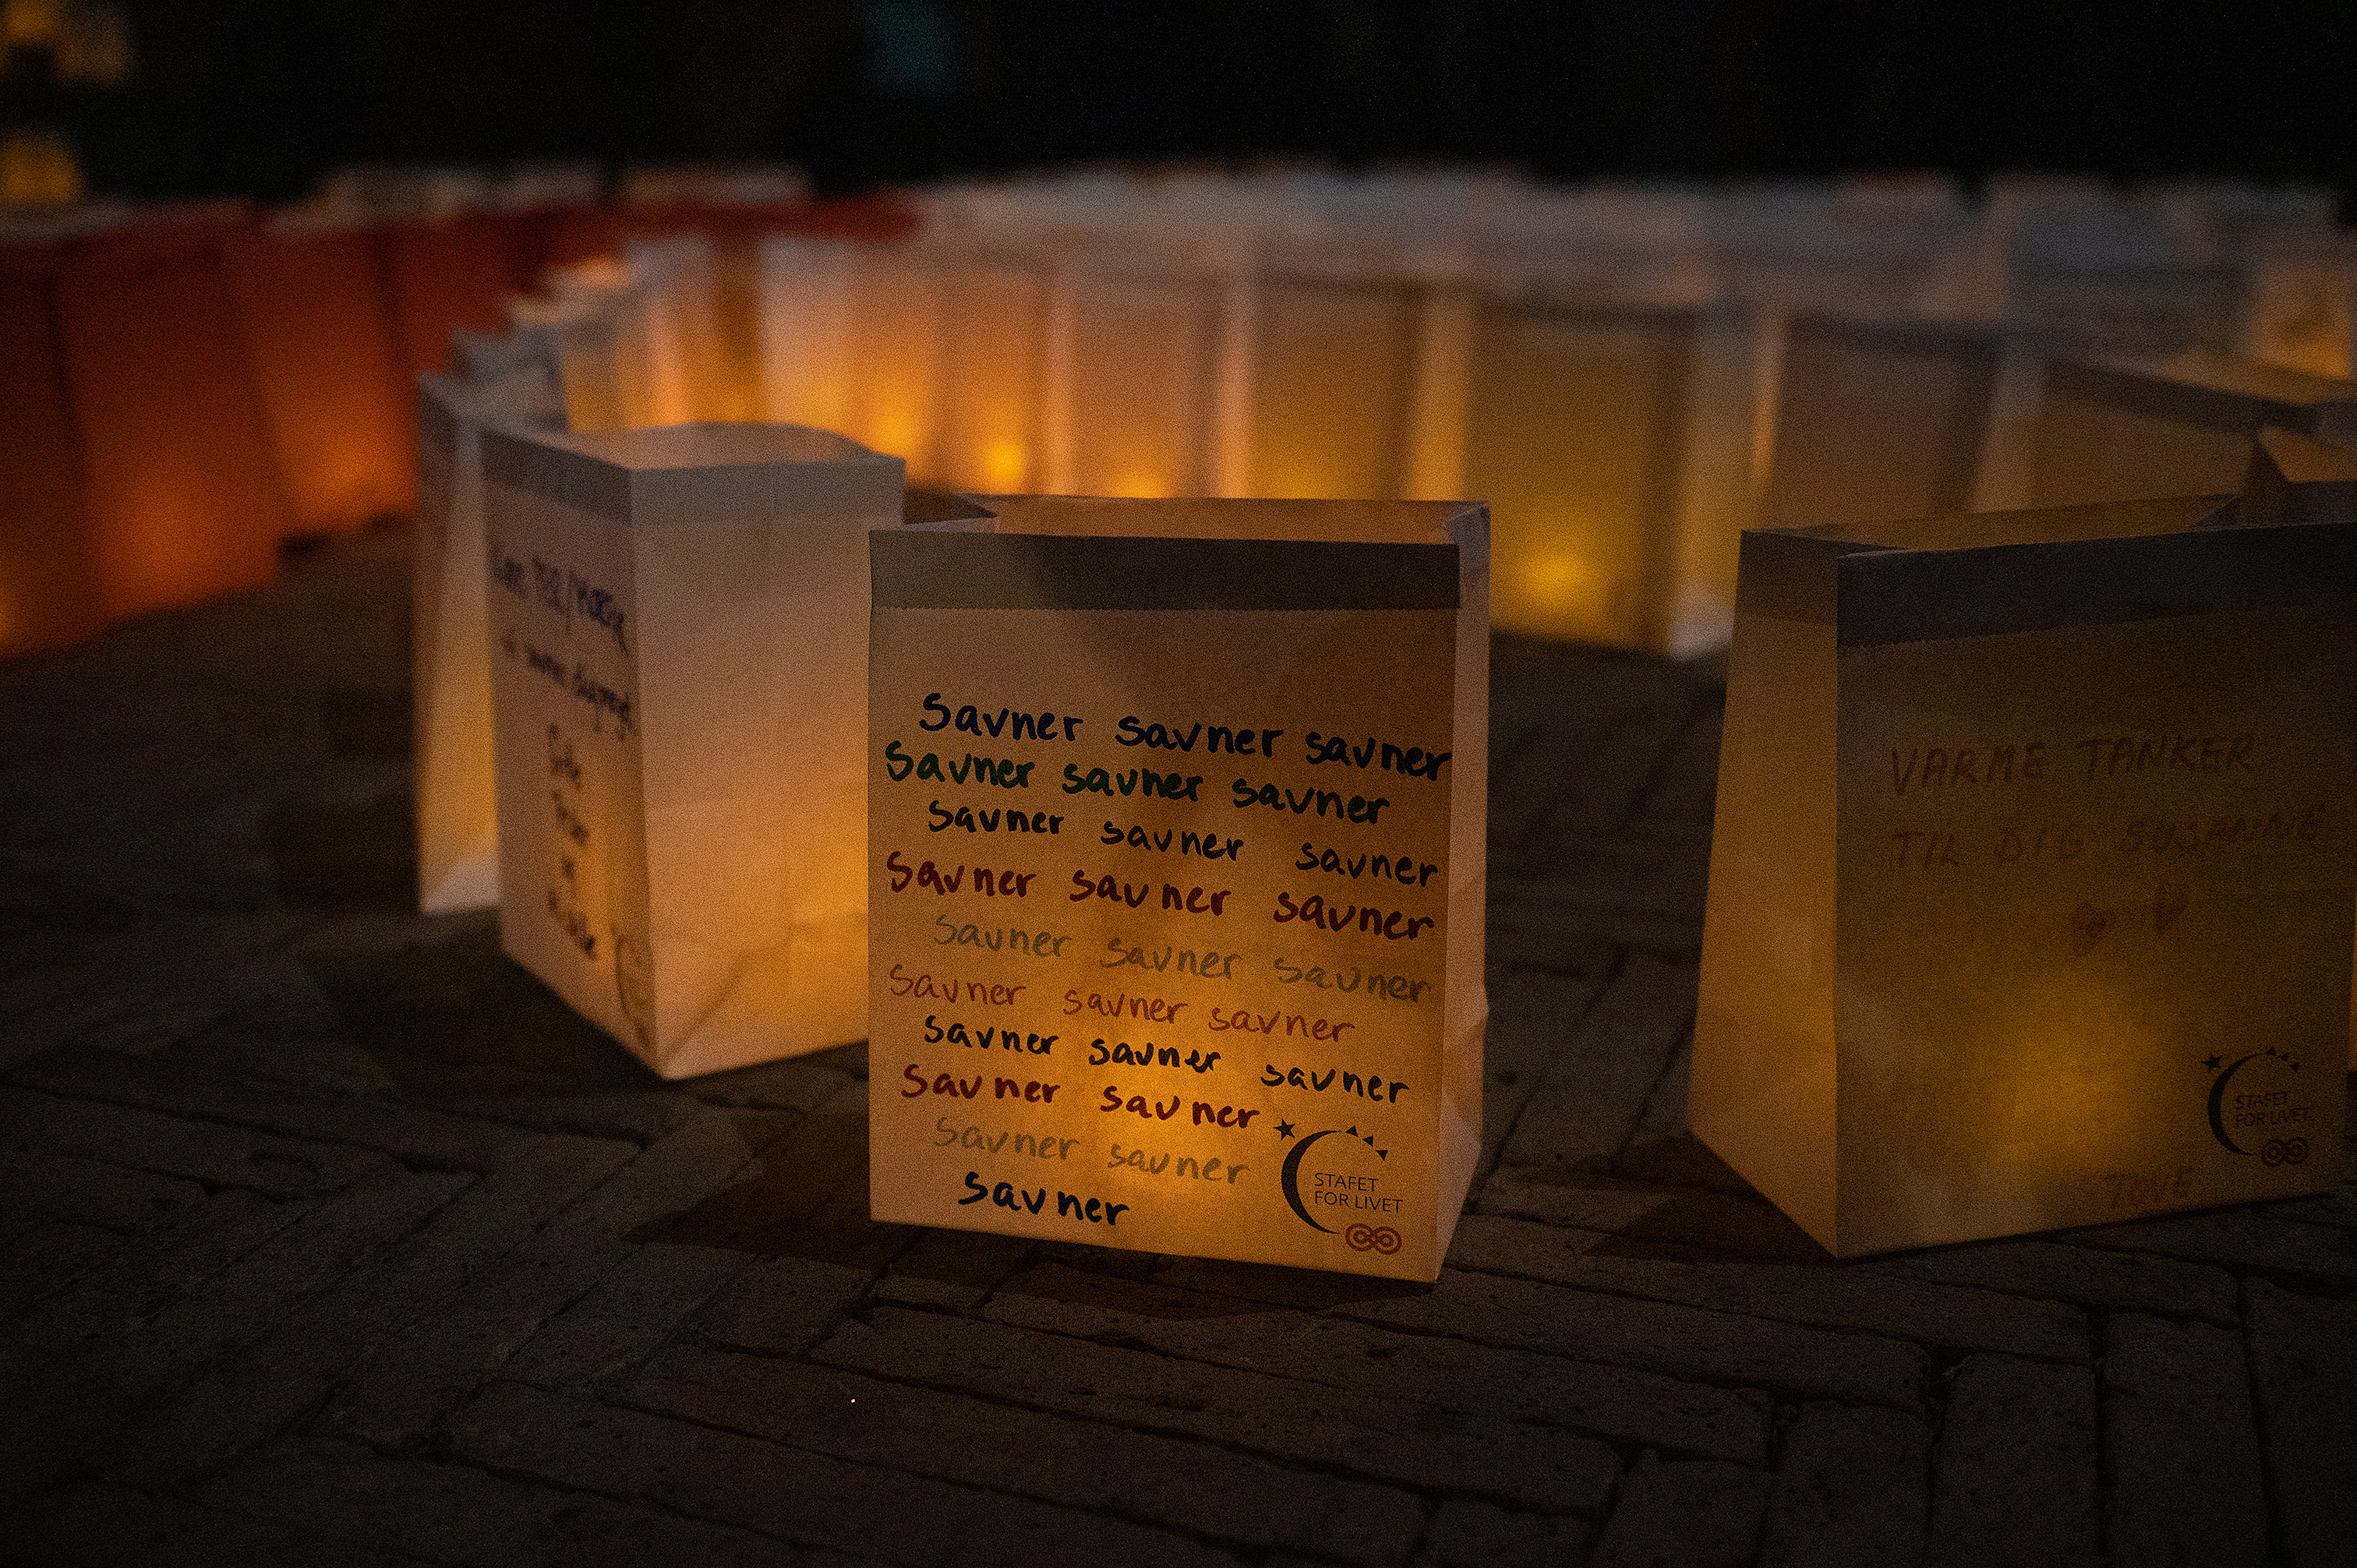 Savner savner savner
Savner savner savner
savner savner savner
Savner savner savner
savner savner savner
savner savner savner
savner savner savner
Savner savner
savner savner
savner
STAFET
FOR LIVET
VARME TANKER
TIL DIG SUSANNE
TOVE
STAFET
FOR LIVET